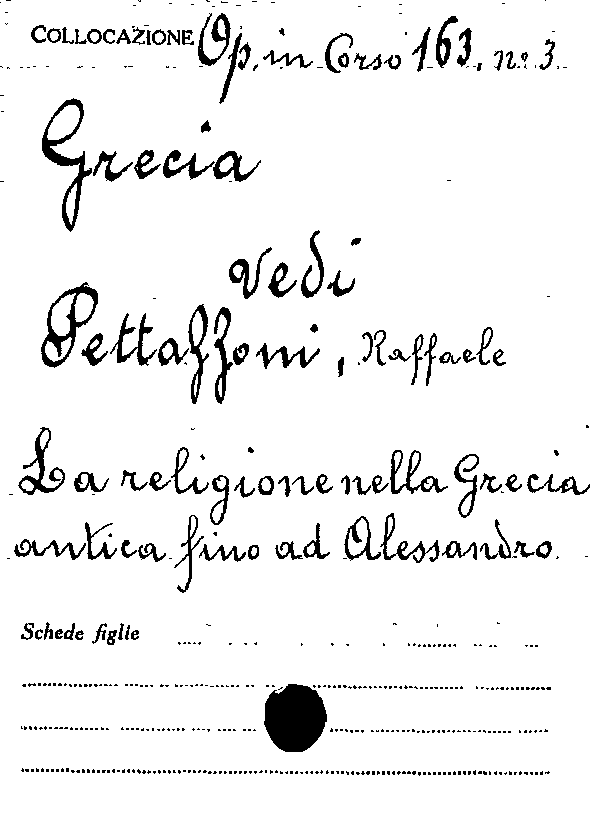 COLLOCAZIONE Op. in Corso 163. n° 3
Grecia
vedi
Pettazzoni, Raffaele
La religione nella Grecia
antica fino ad Alessandro.
Schede figlie